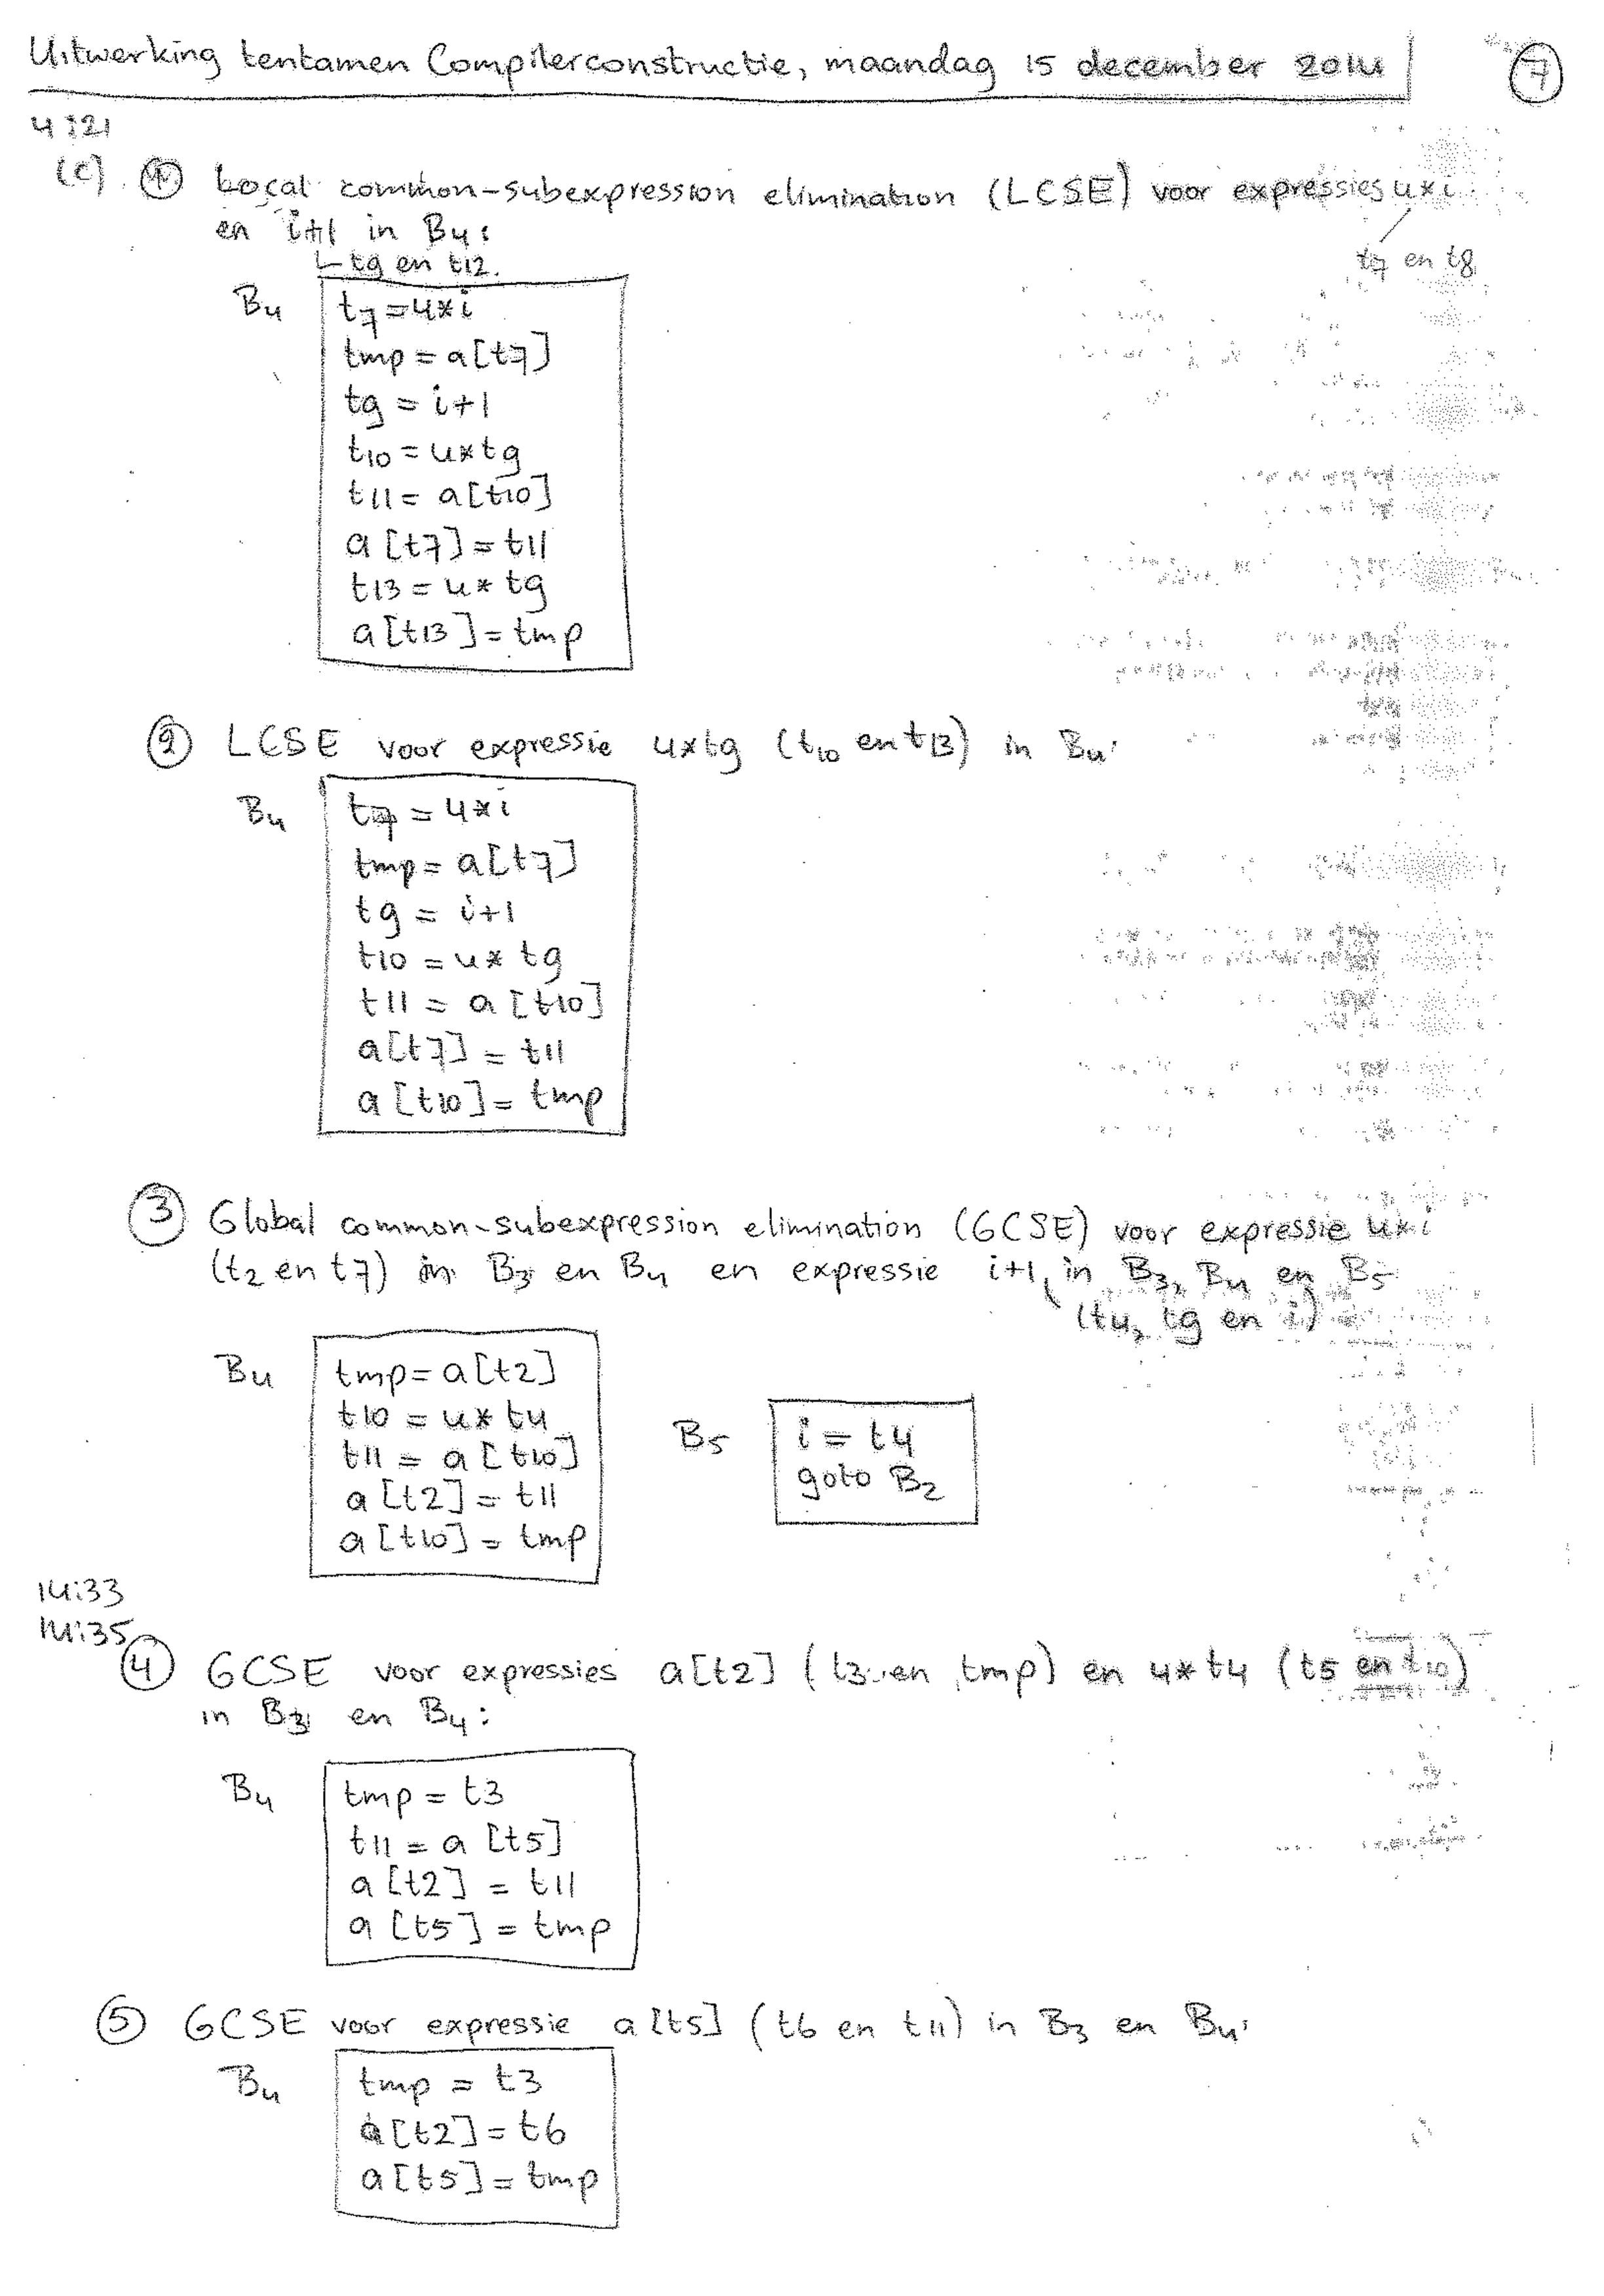 Uitwerking tentamen Compilerconstructie, maandag 15 december 2014
7
4:21
(c) ① Local common-subexpression elimination (LCSE) voor expressies 4*i
en i+1 in B4:
t7 en t8
t9 en t12.
B4
t7 = 4*i
tmp = a[t7]
t9 = i+1
t10 = 4*t9
t11 = a[t10]
a[t7] = t11
t13 = 4*t9
a[t13] = tmp
② LCSE voor expressie 4*t9 (t10 en t13) in B4:
B4
t7 = 4*i
tmp = a[t7]
t9 = i+1
t10 = 4*t9
t11 = a[t10]
a[t7] = t11
a[t10] = tmp
③ Global common-subexpression elimination (GCSE) voor expressie 4*i
(t2 en t7) in B3 en B4 en expressie i+1 in B3, B4 en B5
(t4, t9 en i)
B4
tmp = a[t2]
t10 = 4*t4
t11 = a[t10]
a[t2] = t11
a[t10] = tmp
B5
i = t4
goto B2
14:33
14:35
④ GCSE voor expressies a[t2] (t3 en tmp) en 4*t4 (t5 en t10)
in B3 en B4:
B4
tmp = t3
t11 = a[t5]
a[t2] = t11
a[t5] = tmp
⑤ GCSE voor expressie a[t5] (t6 en t11) in B3 en B4:
B4
tmp = t3
a[t2] = t6
a[t5] = tmp